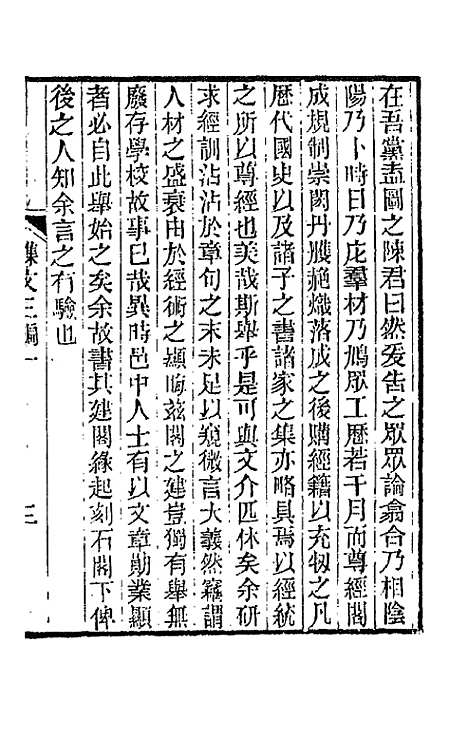 在吾黨盍圖之陳君曰然爰告之眾眾論翕合乃相陰
陽乃卜時日乃庀羣材乃鳩眾工歷若干月而尊經閣
成規制崇閎丹雘赩熾落成之後購經籍以充牣之凡
歷代國史以及諸子之書諸家之集亦略具焉以經統
之所以尊經也美哉斯舉乎是可與文介匹休矣余研
求經訓沾沾於章句之末未足以窺微言大義然竊謂
人材之盛衰由於經術之顯晦茲閣之建豈獨有舉無
廢存學校故事已哉異時邑中人士有以文章勛業顯
者必自此舉始之矣余故書其建閣緣起刻石閣下俾
後之人知余言之有驗也
襍文三編一
三